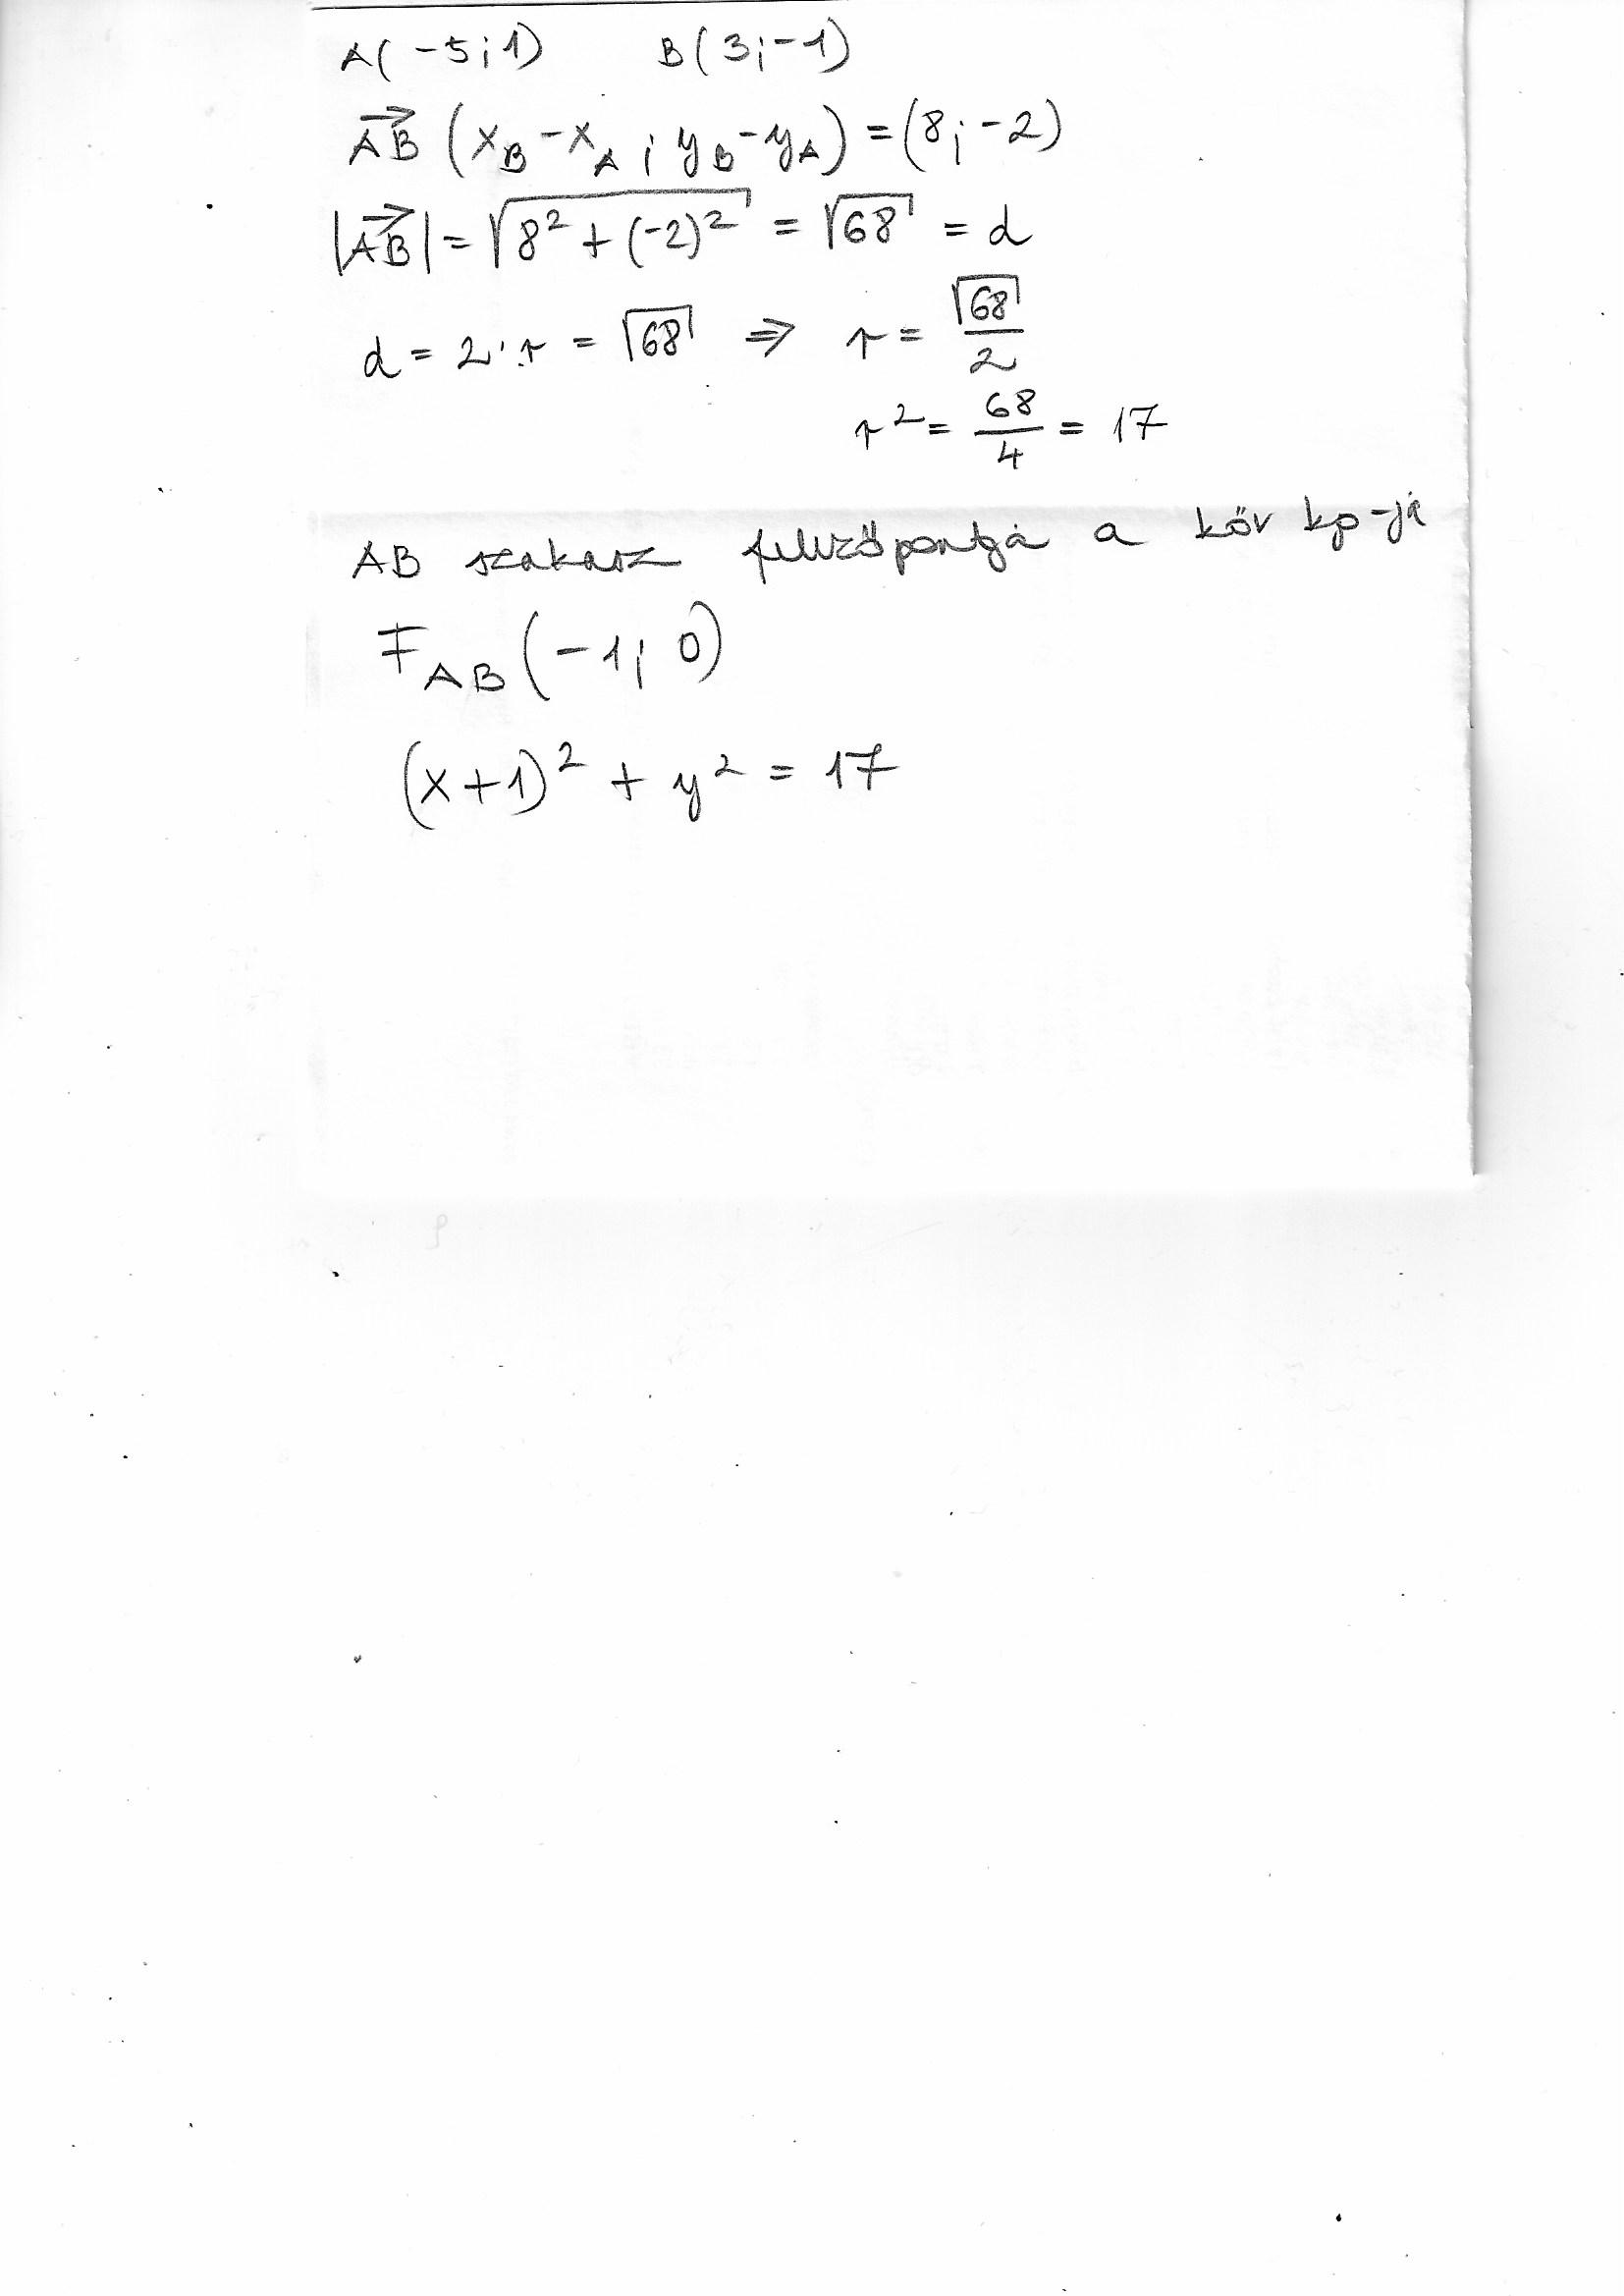 A(-5;1) B(3;-1)
AB→ (x_B - x_A ; y_B - y_A) = (8; -2)
|AB→| = √(8² + (-2)²) = √68 = d
d = 2·r = √68 ⇒ r = √68/2
r² = 68/4 = 17
AB szakasz felezőpontja a kör kp-ja
F_AB (-1; 0)
(x+1)² + y² = 17